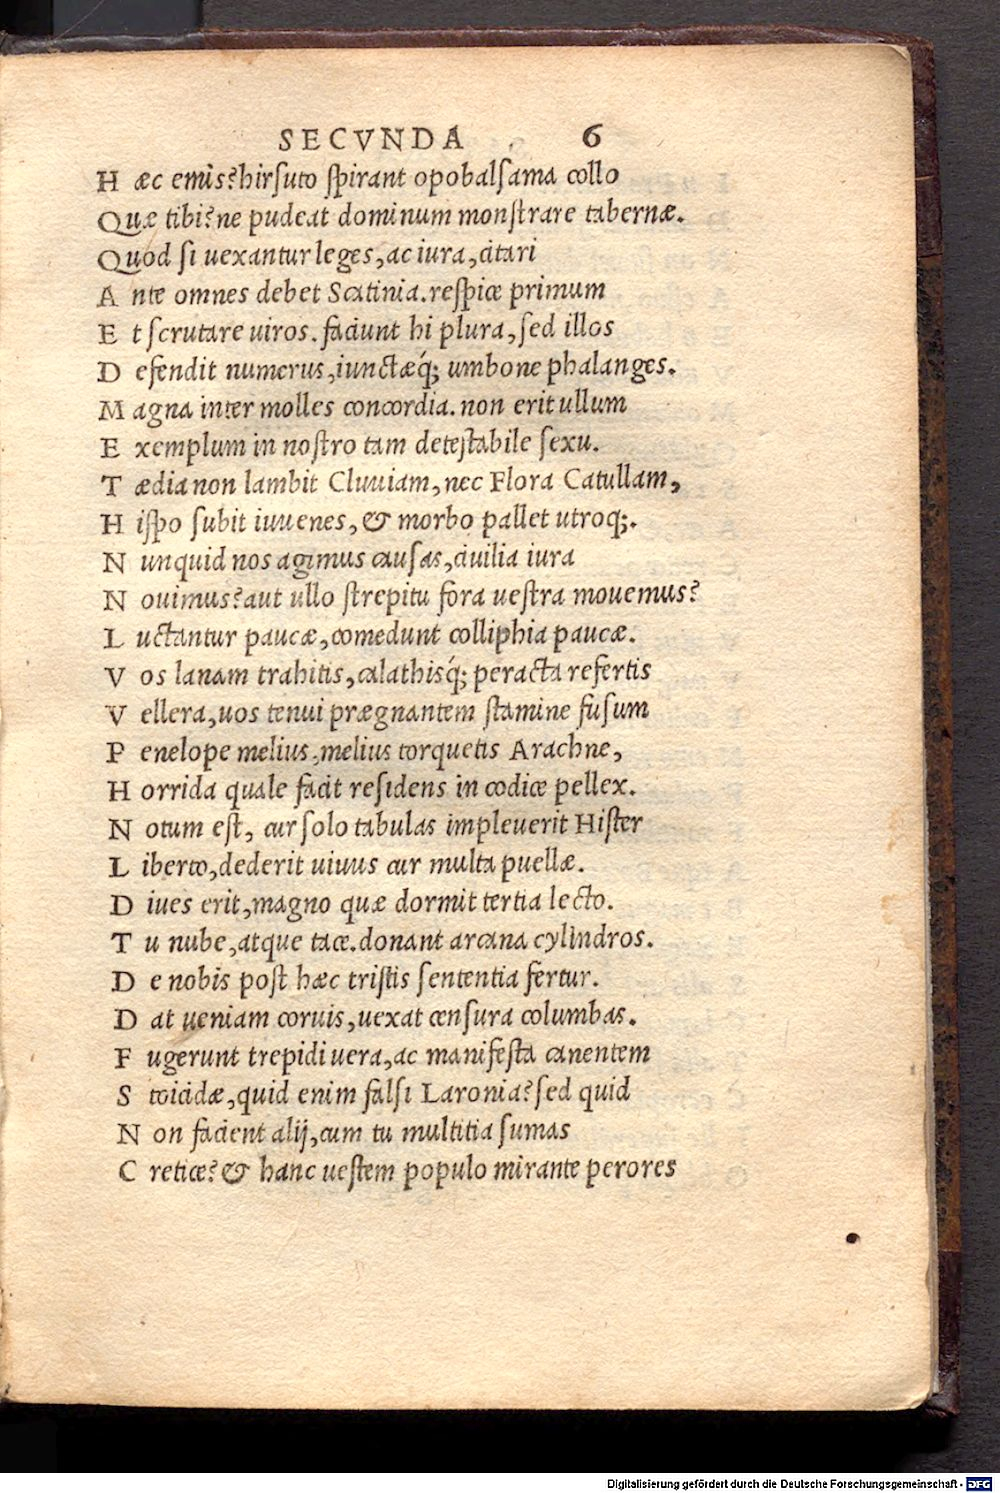 SECVNDA 6
H æc emis? hirſuto ſpirant opobalſama collo
Quæ tibi? ne pudeat dominum monſtrare tabernæ.
Quod ſi uexantur leges, ac iura, citari
A nte omnes debet Scatinia. reſpice primum
E t ſcrutare uiros. faciunt hi plura, ſed illos
D efendit numerus, iunctæq́; umbone phalanges.
M agna inter molles concordia. non erit ullum
E xemplum in noſtro tam deteſtabile ſexu.
T ædia non lambit Cluuiam, nec Flora Catullam,
H iſpo ſubit iuuenes, & morbo pallet utroq;.
N unquid nos agimus cauſas, ciuilia iura
N ouimus? aut ullo ſtrepitu fora ueſtra mouemus?
L uctantur paucæ, comedunt colliphia paucæ.
V os lanam trahitis, calathisq́; peracta refertis
V ellera, uos tenui prægnantem ſtamine fuſum
P enelope melius, melius torquetis Arachne,
H orrida quale facit reſidens in codice pellex.
N otum eſt, cur ſolo tabulas impleuerit Hiſter
L iberto, dederit uiuus cur multa puellæ.
D iues erit, magno quæ dormit tertia lecto.
T u nube, atque tace. donant arcana cylindros.
D e nobis poſt hæc triſtis ſententia fertur.
D at ueniam coruis, uexat cenſura columbas.
F ugerunt trepidi uera, ac manifeſta canentem
S toicidæ, quid enim falſi Laronia? ſed quid
N on facient alij, cum tu multitia ſumas
C retice? & hanc ueſtem populo mirante perores
Digitalisierung gefördert durch die Deutsche Forschungsgemeinschaft - DFG